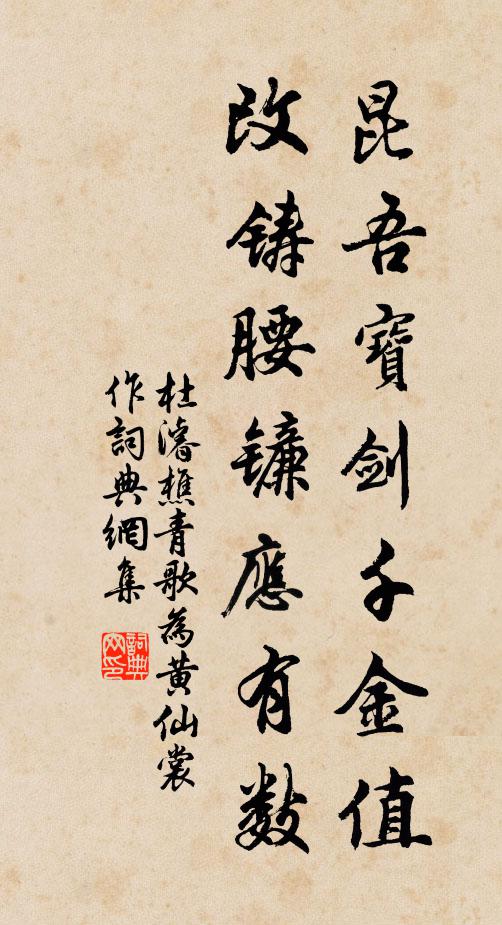 昆吾寶劍千金值
改鑄腰鐮應有數
杜濬樵青歌為黃仙裳
作詞典網集
詞典網印